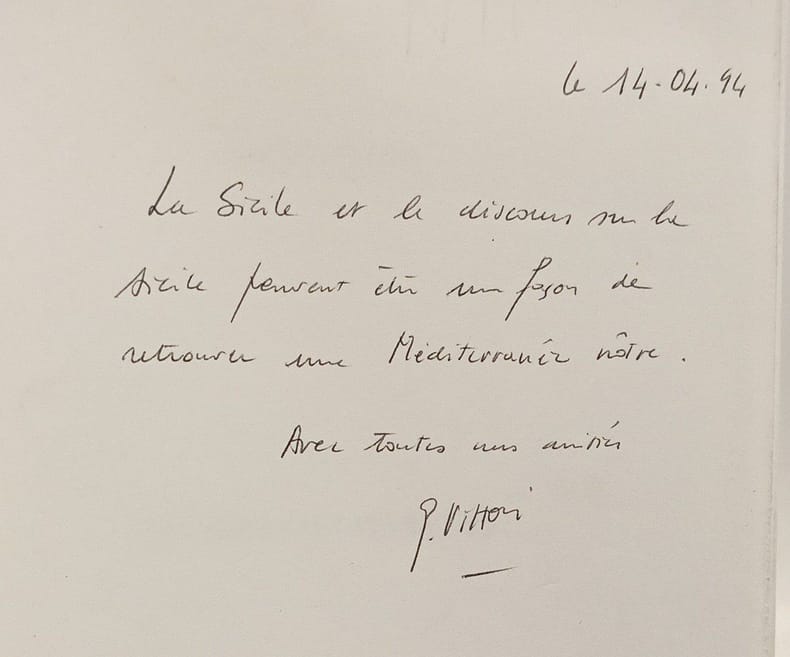 le 14.04.94
La Sicile et le discours sur la
Sicile peuvent être une façon de
retrouver une Méditerranée nôtre.
Avec toutes mes amitiés
Vittori